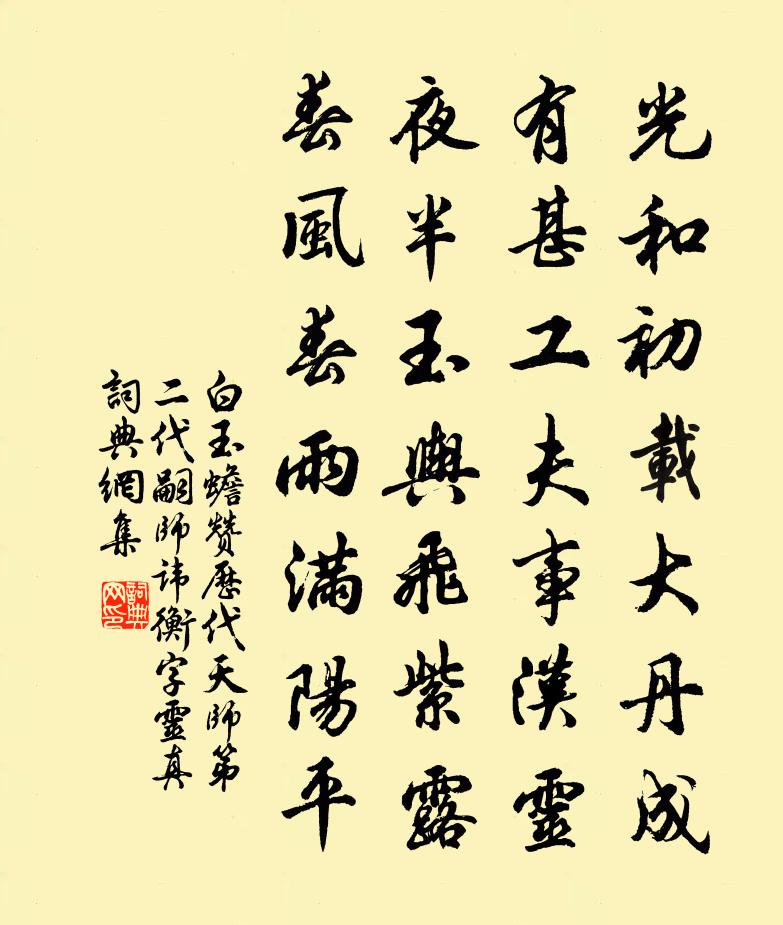 光和初載大丹成
有甚工夫事漢靈
夜半玉輿飛紫露
春風春雨滿陽平
白玉蟾赞歷代天師第
二代嗣師諱衡字靈真
詞典網集
詞典
网印